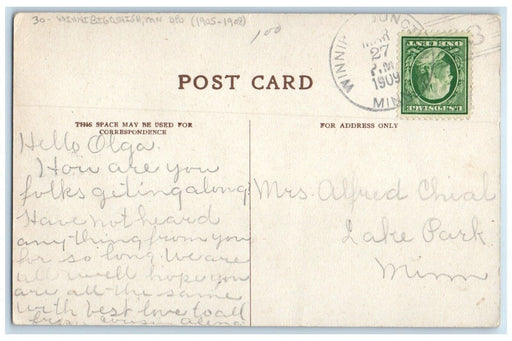 30- WINNIBIGOSHISH, MN DPO (1905-1908)
1 00
WINNIP JUNC
MAR
27
P.M.
1909
MIN
U.S. POSTAGE
ONE CENT
POST CARD
THIS SPACE MAY BE USED FOR
CORRESPONDENCE
FOR ADDRESS ONLY
Hello Olga.
How are you
folks gitingalong
Have not heard
anything from you
for so long We are
all well hope you
are all the same
with best love to all
from cousin
Mrs. Alfred Chial
Lake Park.
Minn